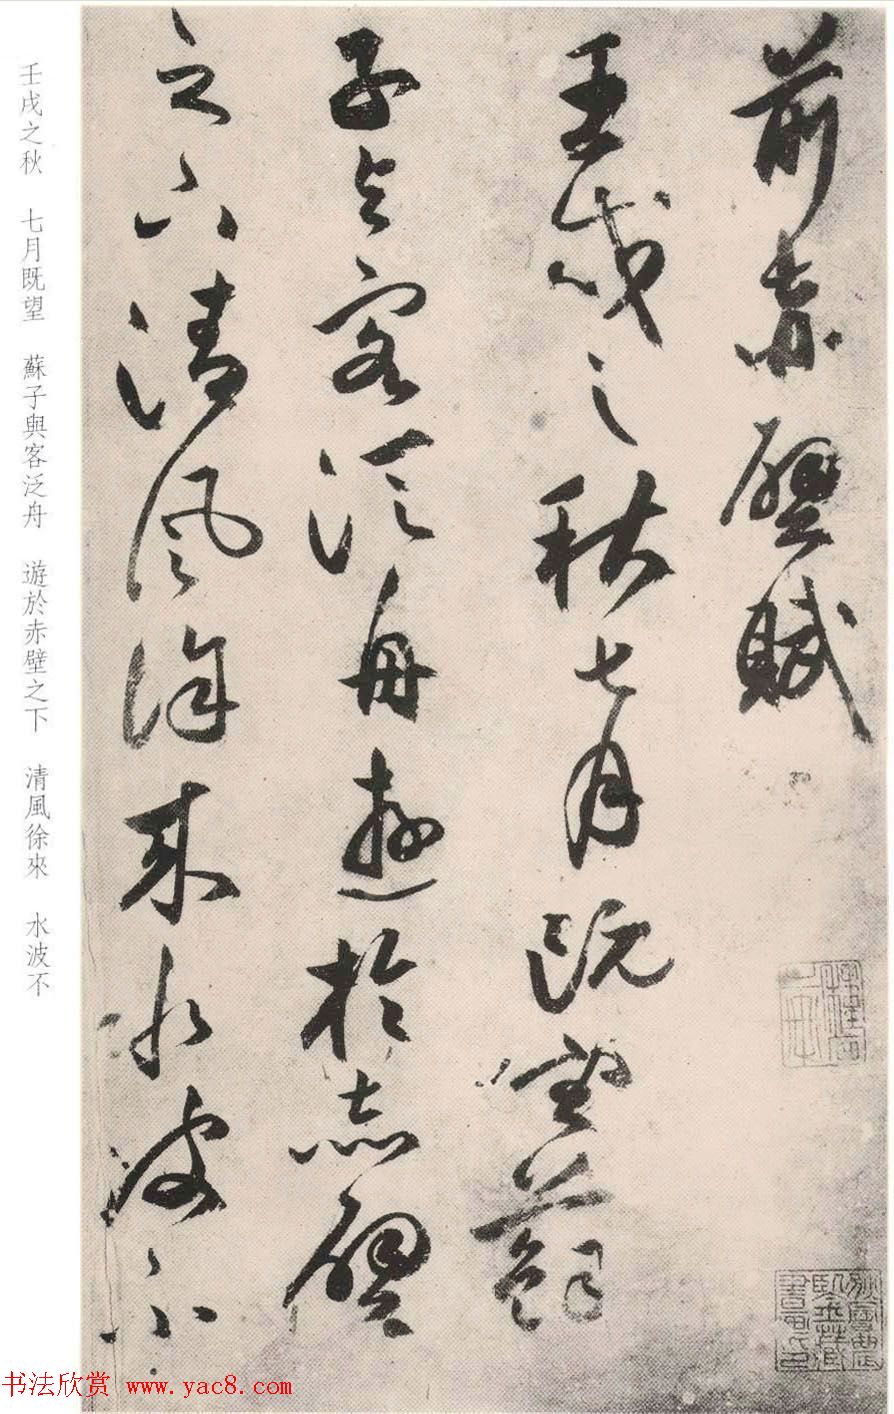 前赤壁賦
壬戌之秋七月既望蘇
子與客泛舟遊於赤壁
之下清風徐來水波不
壬戌之秋 七月既望 蘇子與客泛舟 遊於赤壁之下 清風徐來 水波不
书法欣赏 www.yac8.com